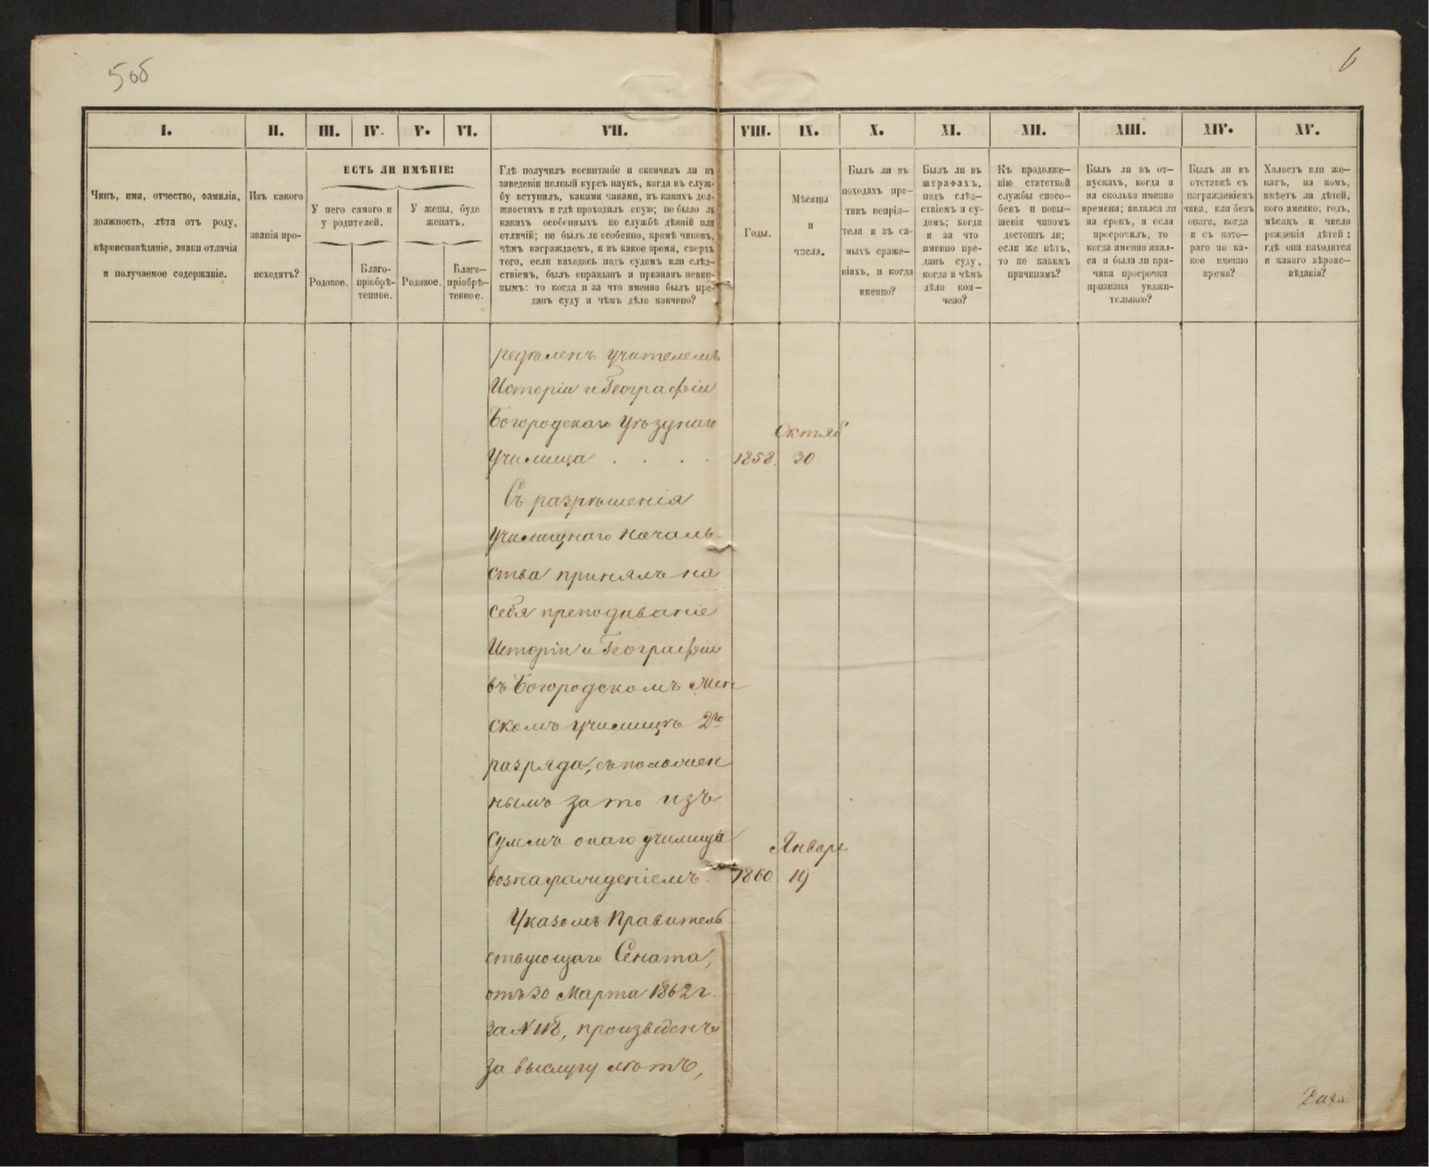 5об
6
I.
II.
III.
IV.
V.
VI.
VII.
VIII.
IX.
X.
XI.
XII.
XIII.
XIV.
XV.
Чинъ, имя, отчество, фамилія,
должность, лѣта отъ роду,
вѣроисповѣданіе, знаки отличія
и получаемое содержаніе.
Изъ какого
званія про-
исходитъ?
ЕСТЬ ЛИ ИМѢНІЕ:
У него самого и
у родителей.
У жены, буде
женатъ.
Родовое.
Благо-
пріобрѣ-
тенное.
Родовое.
Благо-
пріобрѣ-
тенное.
Гдѣ получилъ воспитаніе и окончилъ ли въ
заведеніи полный курсъ наукъ, когда въ служ-
бу вступилъ, какими чинами, въ какихъ дол-
жностяхъ и гдѣ проходилъ оную; не было ли
какихъ особенныхъ по службѣ дѣяній или
отличій; не былъ ли особенно, кромѣ чиновъ,
чѣмъ награждаемъ, и въ какое время, сверхъ
того, если находясь подъ судомъ или слѣд-
ствіемъ, былъ оправданъ и признанъ невин-
нымъ: то когда и за что именно былъ пре-
данъ суду и чѣмъ дѣло кончено?
Годы.
Мѣсяцы
и
числа.
Былъ ли въ
походахъ про-
тивъ непрія-
теля и въ са-
мыхъ сраже-
ніяхъ, и когда
именно?
Былъ ли въ
штрафахъ,
подъ слѣд-
ствіемъ и су-
домъ; когда
и за что
именно пре-
данъ суду,
когда и чѣмъ
дѣло кон-
чено?
Къ продолже-
нію статской
службы спосо-
бенъ и повы-
шенія чиномъ
достоинъ ли;
если же нѣтъ,
то по какимъ
причинамъ?
Былъ ли въ от-
пускахъ, когда и
на сколько именно
времени; явился ли
на срокъ, и если
просрочилъ, то
когда именно явил-
ся и была ли при-
чина просрочки
признана уважи-
тельною?
Былъ ли въ
отставкѣ съ
награжденіемъ
чина, или безъ
онаго, когда
и съ кото-
раго по ка-
кое именно
время?
Холостъ или же-
натъ, на комъ,
имѣетъ ли дѣтей,
кого именно; годъ,
мѣсяцъ и число
рожденія дѣтей;
гдѣ они находятся
и какого вѣроис-
вѣданія?
редѣленъ учителемъ
Исторіи и Географіи
Богородскаго Уѣзднаго
Училища . . . .
1858. Октяб
30
Съ разрѣшенія
училищнаго началь-
ства принялъ на
себя преподаваніе
Исторіи и Географіи
въ Богородскомъ Жен
скомъ училищѣ 2го
разряда, съ положен
нымъ за то изъ
суммъ онаго училища
вознагражденіемъ.
1860 Января
19
Указомъ Правитель
ствующаго Сената,
отъ 30 Марта 1862 г.
за № 118, произведенъ
за выслугу лѣтъ,